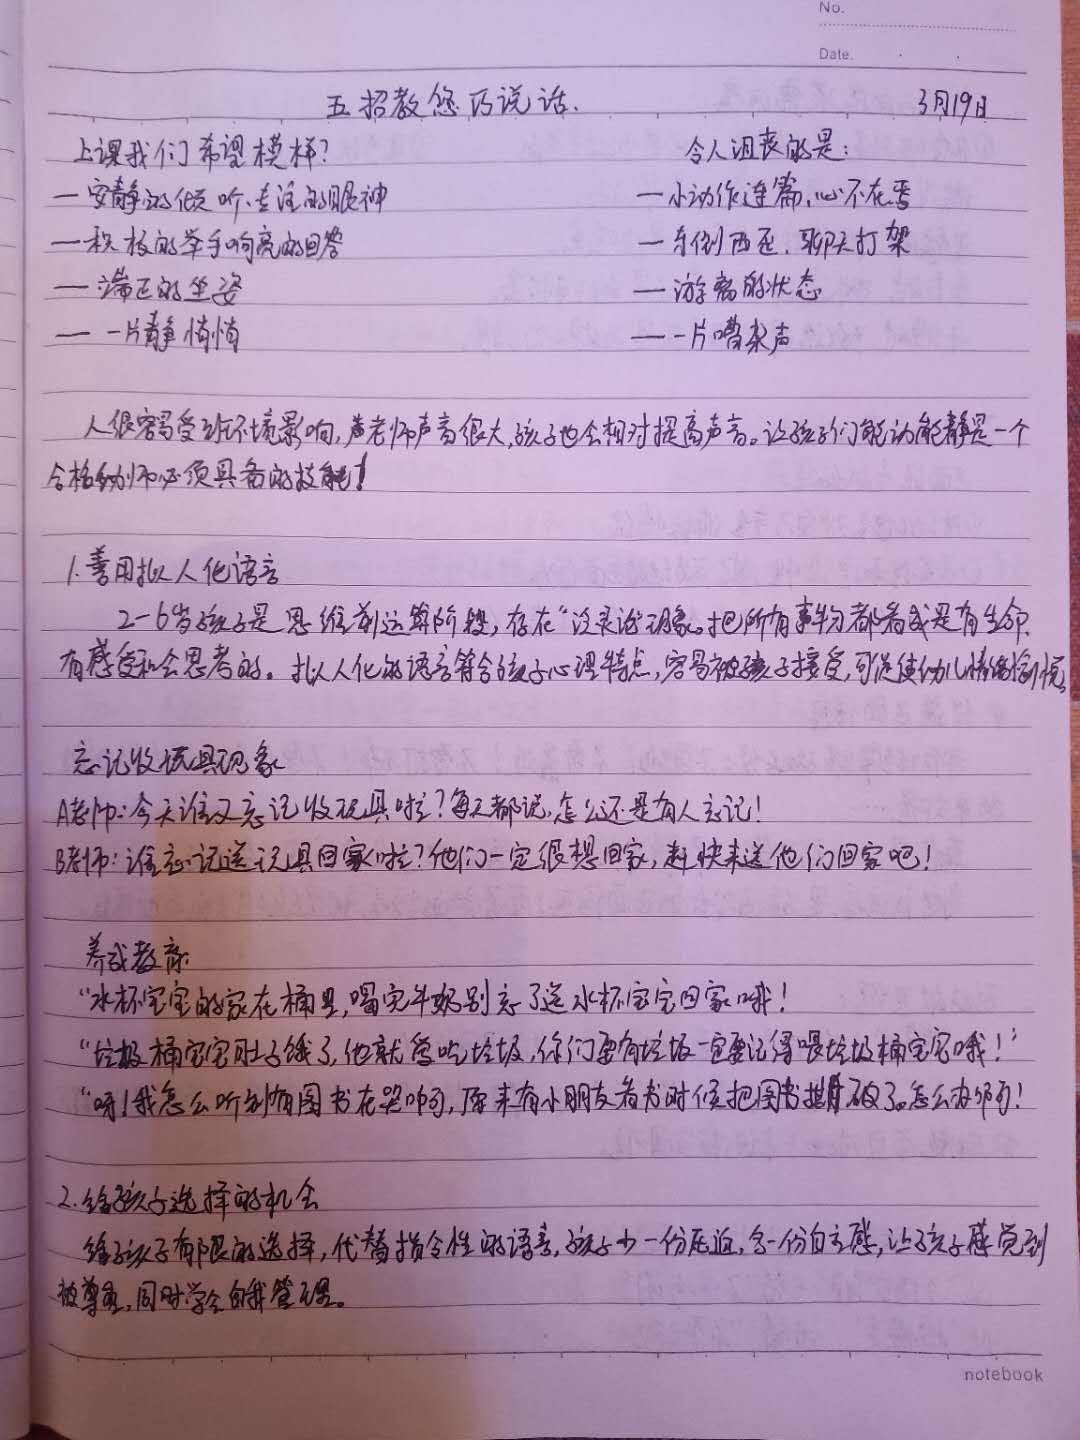 No.
Date.
五招教您巧说话.
3月19日
上课我们希望模样?
令人沮丧的是:
一安静的倾听、专注的眼神
一小动作连篇,心不在焉
一积极的举手响亮的回答
一东倒西歪、聊天打架
一端正的坐姿
一游离的状态
一一片静悄悄
一一片嘈杂声
人很容易受到环境影响,老师声音很大,孩子也会相对提高声音。让孩子们能动能静是一个
合格幼师必须具备的技能!
1.善用拟人化语言
2-6岁孩子是思维前运算阶段,存在"泛灵论"现象。把所有事物都看成是有生命
有感受和会思考的。拟人化的语言符合孩子心理特点,容易被孩子接受,可促使幼儿情绪愉悦
忘记收玩具现象
A老师:今天谁又忘记收玩具啦?每天都说,怎么还是有人忘记!
B老师:谁忘记送玩具回家啦?他们一定很想回家,赶快来送他们回家吧!
养成教育
"水杯宝宝的家在桶里,喝完牛奶别忘了送水杯宝宝回家哦!
"垃圾桶宝宝肚子饿了,他就爱吃垃圾,你们要有垃圾一定要记得喂垃圾桶宝宝哦!"
"呀!我怎么听到有图书在哭啊,原来有小朋友看书时候把图书撕破了。怎么办啊!
2.给孩子选择的机会
给孩子有限的选择,代替指令性的语言,孩子少一份压迫,多一份自主感,让孩子感觉到
被尊重,同时学会自我管理。
notebook